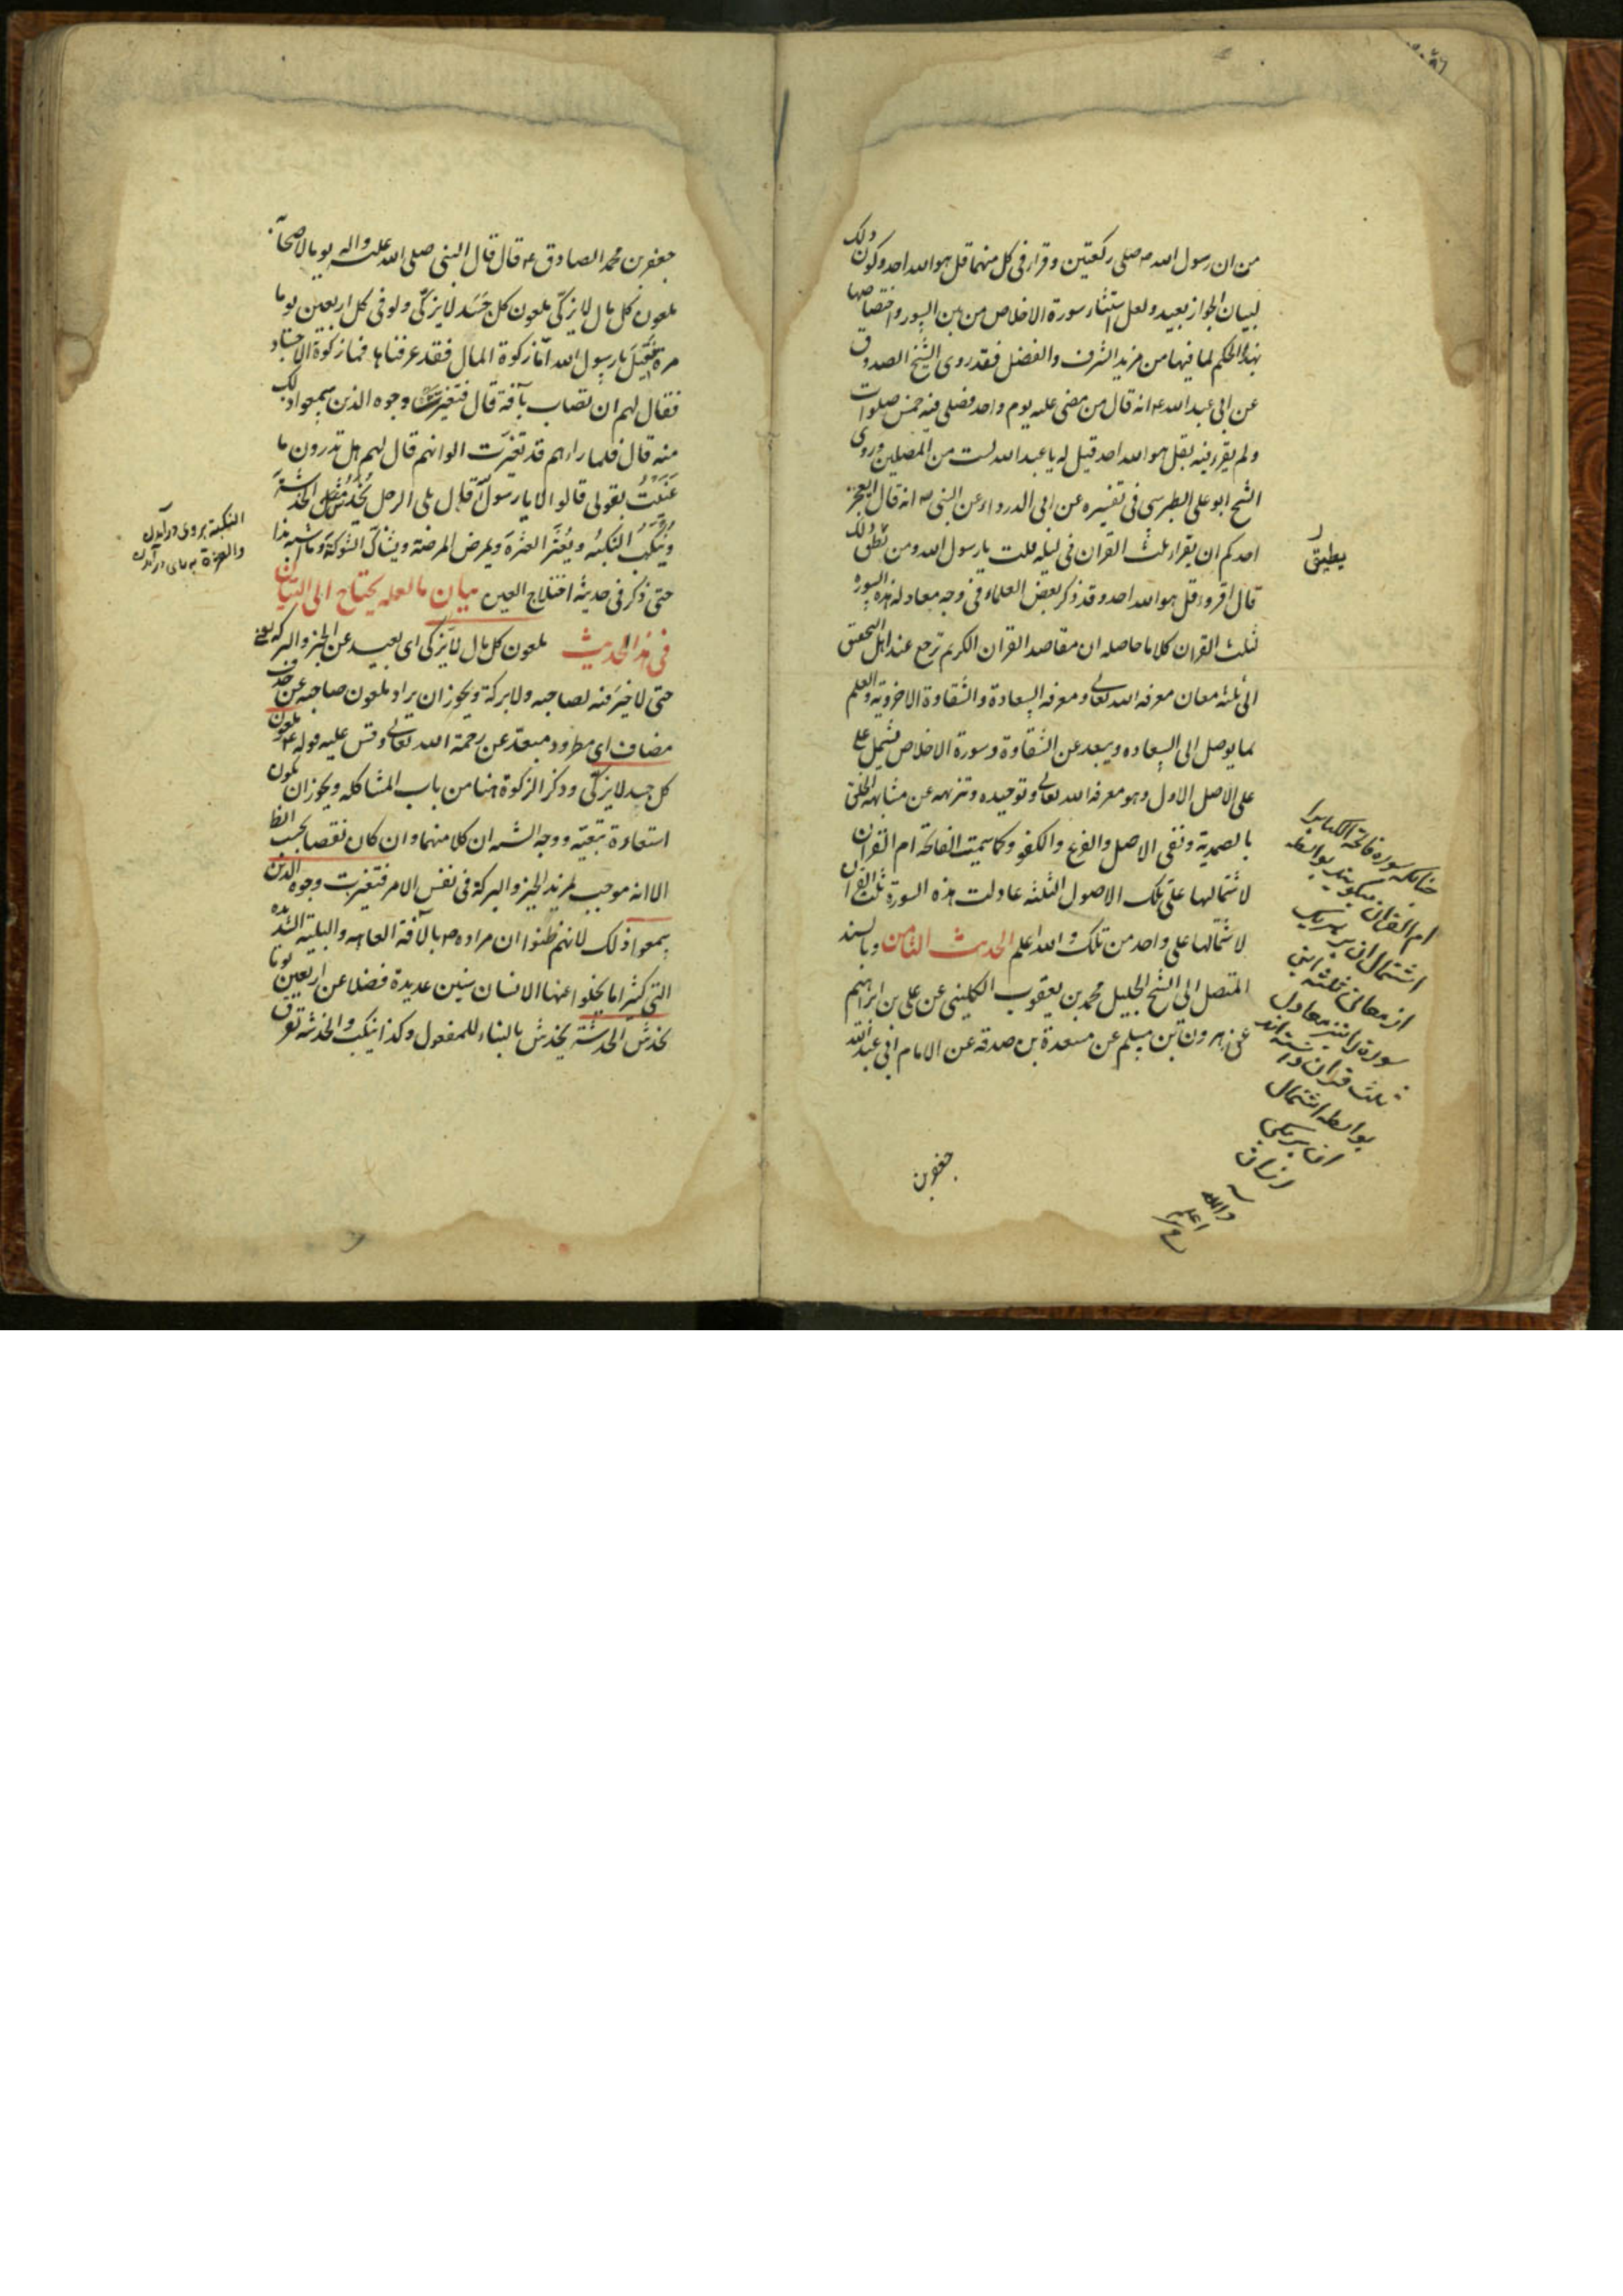 من ان رسول الله ص صلى ركعتين وقرا فى كل منهما قل هو الله احد وكون ذلك
لبيان الجواز بعيد ولعل استثناء سورة الاخلاص من بين السور واختصاصها
بهذا الحكم لما فيها من مزيد الشرف والفضل فقد روى الشيخ الصدوق
عن ابى عبد الله ع انه قال من مضى عليه يوم واحد فصلى فيه خمس صلوات
ولم يقرء فيه بقل هو الله احد قيل له يا عبد الله لست من المصلين وروى
الشيخ ابو على الطبرسى فى تفسيره عن ابى الدرداء عن النبى ص انه قال ايعجز
احدكم ان يقرا ثلث القران فى ليله قلت يا رسول الله ومن يطق ذلك
يطيق
قال اقروا قل هو الله احد وقد ذكر بعض العلماء فى وجه معادله هذه السوره
لثلث القران كلاما حاصله ان مقاصد القران الكريم ترجع عند اهل التحقيق
الى ثلثه معان معرفه الله تعالى ومعرفه السعادة والشقاوة الاخرويه والعلم
لما يوصل الى السعاده ويبعد عن الشقاوة وسورة الاخلاص تشتمل على
على الاصل الاول وهو معرفه الله تعالى وتوحيده وتنزيهه عن مشابهه الخلق
بالصمدية ونفى الاصل والفرع والكفو وكما سميت الفاتحة ام القران
لاشتمالها على تلك الاصول الثلثه عادلت هذه السورة ثلث القران
لاشتمالها على واحد من تلك والله اعلم الحديث الثامن وبالسند
المتصل الى الشيخ الجليل محمد بن يعقوب الكلينى عن على بن ابراهيم
عن هرون بن مسلم عن مسعدة بن صدقه عن الامام ابى عبد الله
جعفر بن
چنانكه سوره فاتحة الكتابرا
ام القران ميكويند بواسطه
اشتمال ان بر هريك
از معانى ثلثه اين
سورة را نيز معادل
ثلث قران داشته اند
بواسطه اشتمال
ان بر يكى
از ان
والله
اعلم
جعفر بن محمد الصادق ع قال قال النبى صلى الله عليه واله يوما لاصحابه
ملعون كل مال لا يزكّى ملعون كل جَسَد لا يزكّى ولو فى كل اربعين يوما
مرة فقيل يا رسول الله امّا زكوة المال فقد عرفناها فما زكوة الاجساد
فقال لهم ان تصاب بآفة قال فتغيرت وجوه الذين سمعوا ذلك
منه قال فلما راهم قد تغيّرت الوانهم قال لهم هل تدرون ما
عَنَيْتُ بقولى قالوا لا يا رسول الله قال بلى الرجل يُخْدَشُ الخدشةَ
ويُنكَبُ النكبةَ ويُعثَر العثرةَ ويمرض المرضة ويشاكّ الشوكةَ وما اشبه هذا
حتى ذكر فى حديثه اختلاج العين بيان ما لعله يحتاج الى التبيان
فى هذا الحديث ملعون كل مال لا يزكى اى بعيد عن الخير والبركه يعنى
حتى لا خير فيه لصاحبه ولا بركة ويجوز ان يراد ملعون صاحبه عن حذف
مضاف اى مطرود مبعّد عن رحمة الله تعالى وقس عليه قوله ع ملعون
كل جسد لا يزكّى وذكر الزكوة هنا من باب المشاكله ويجوز ان يكون
استعارة تبعيّه ووجه الشبه ان كلا منهما وان كان نقصا بحسب الظ
الا انه موجب لمزيد الخير والبركة فى نفس الامر فتغيرت وجوه الذين
سمعوا ذلك لانهم ظنوا ان مراده ص بالآفة العاهه والبلية الشديده
التى كثيرا ما يخلوا عنها الانسان سنين عديدة فضلا عن اربعين يوما
يخدش الخدشة يخدش بالبناء للمفعول وكذا ينكب والخدشه تفرق
النكبة بروى درآمدن
والعثرة به پاى درآمدن